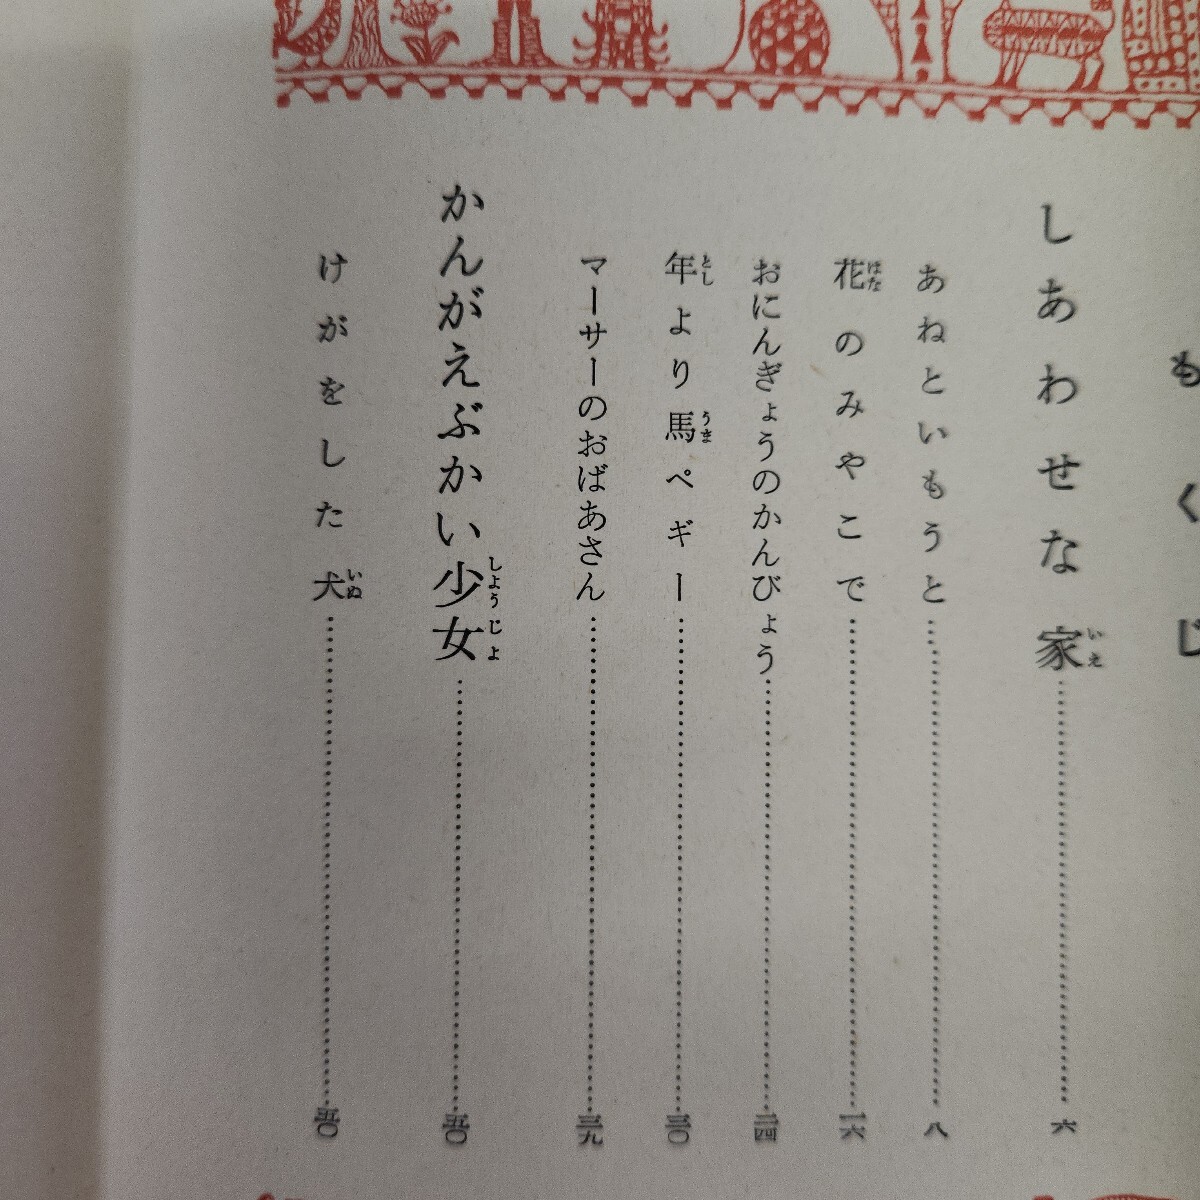 もくじ
しあわせな家いえ……六
あねといもうと……八
花はなのみやこで……一六
おにんぎょうのかんびょう……二四
年としより馬うまペギー……三〇
マーサーのおばあさん……三九
かんがえぶかい少女しようじよ……五〇
けがをした犬いぬ……五〇